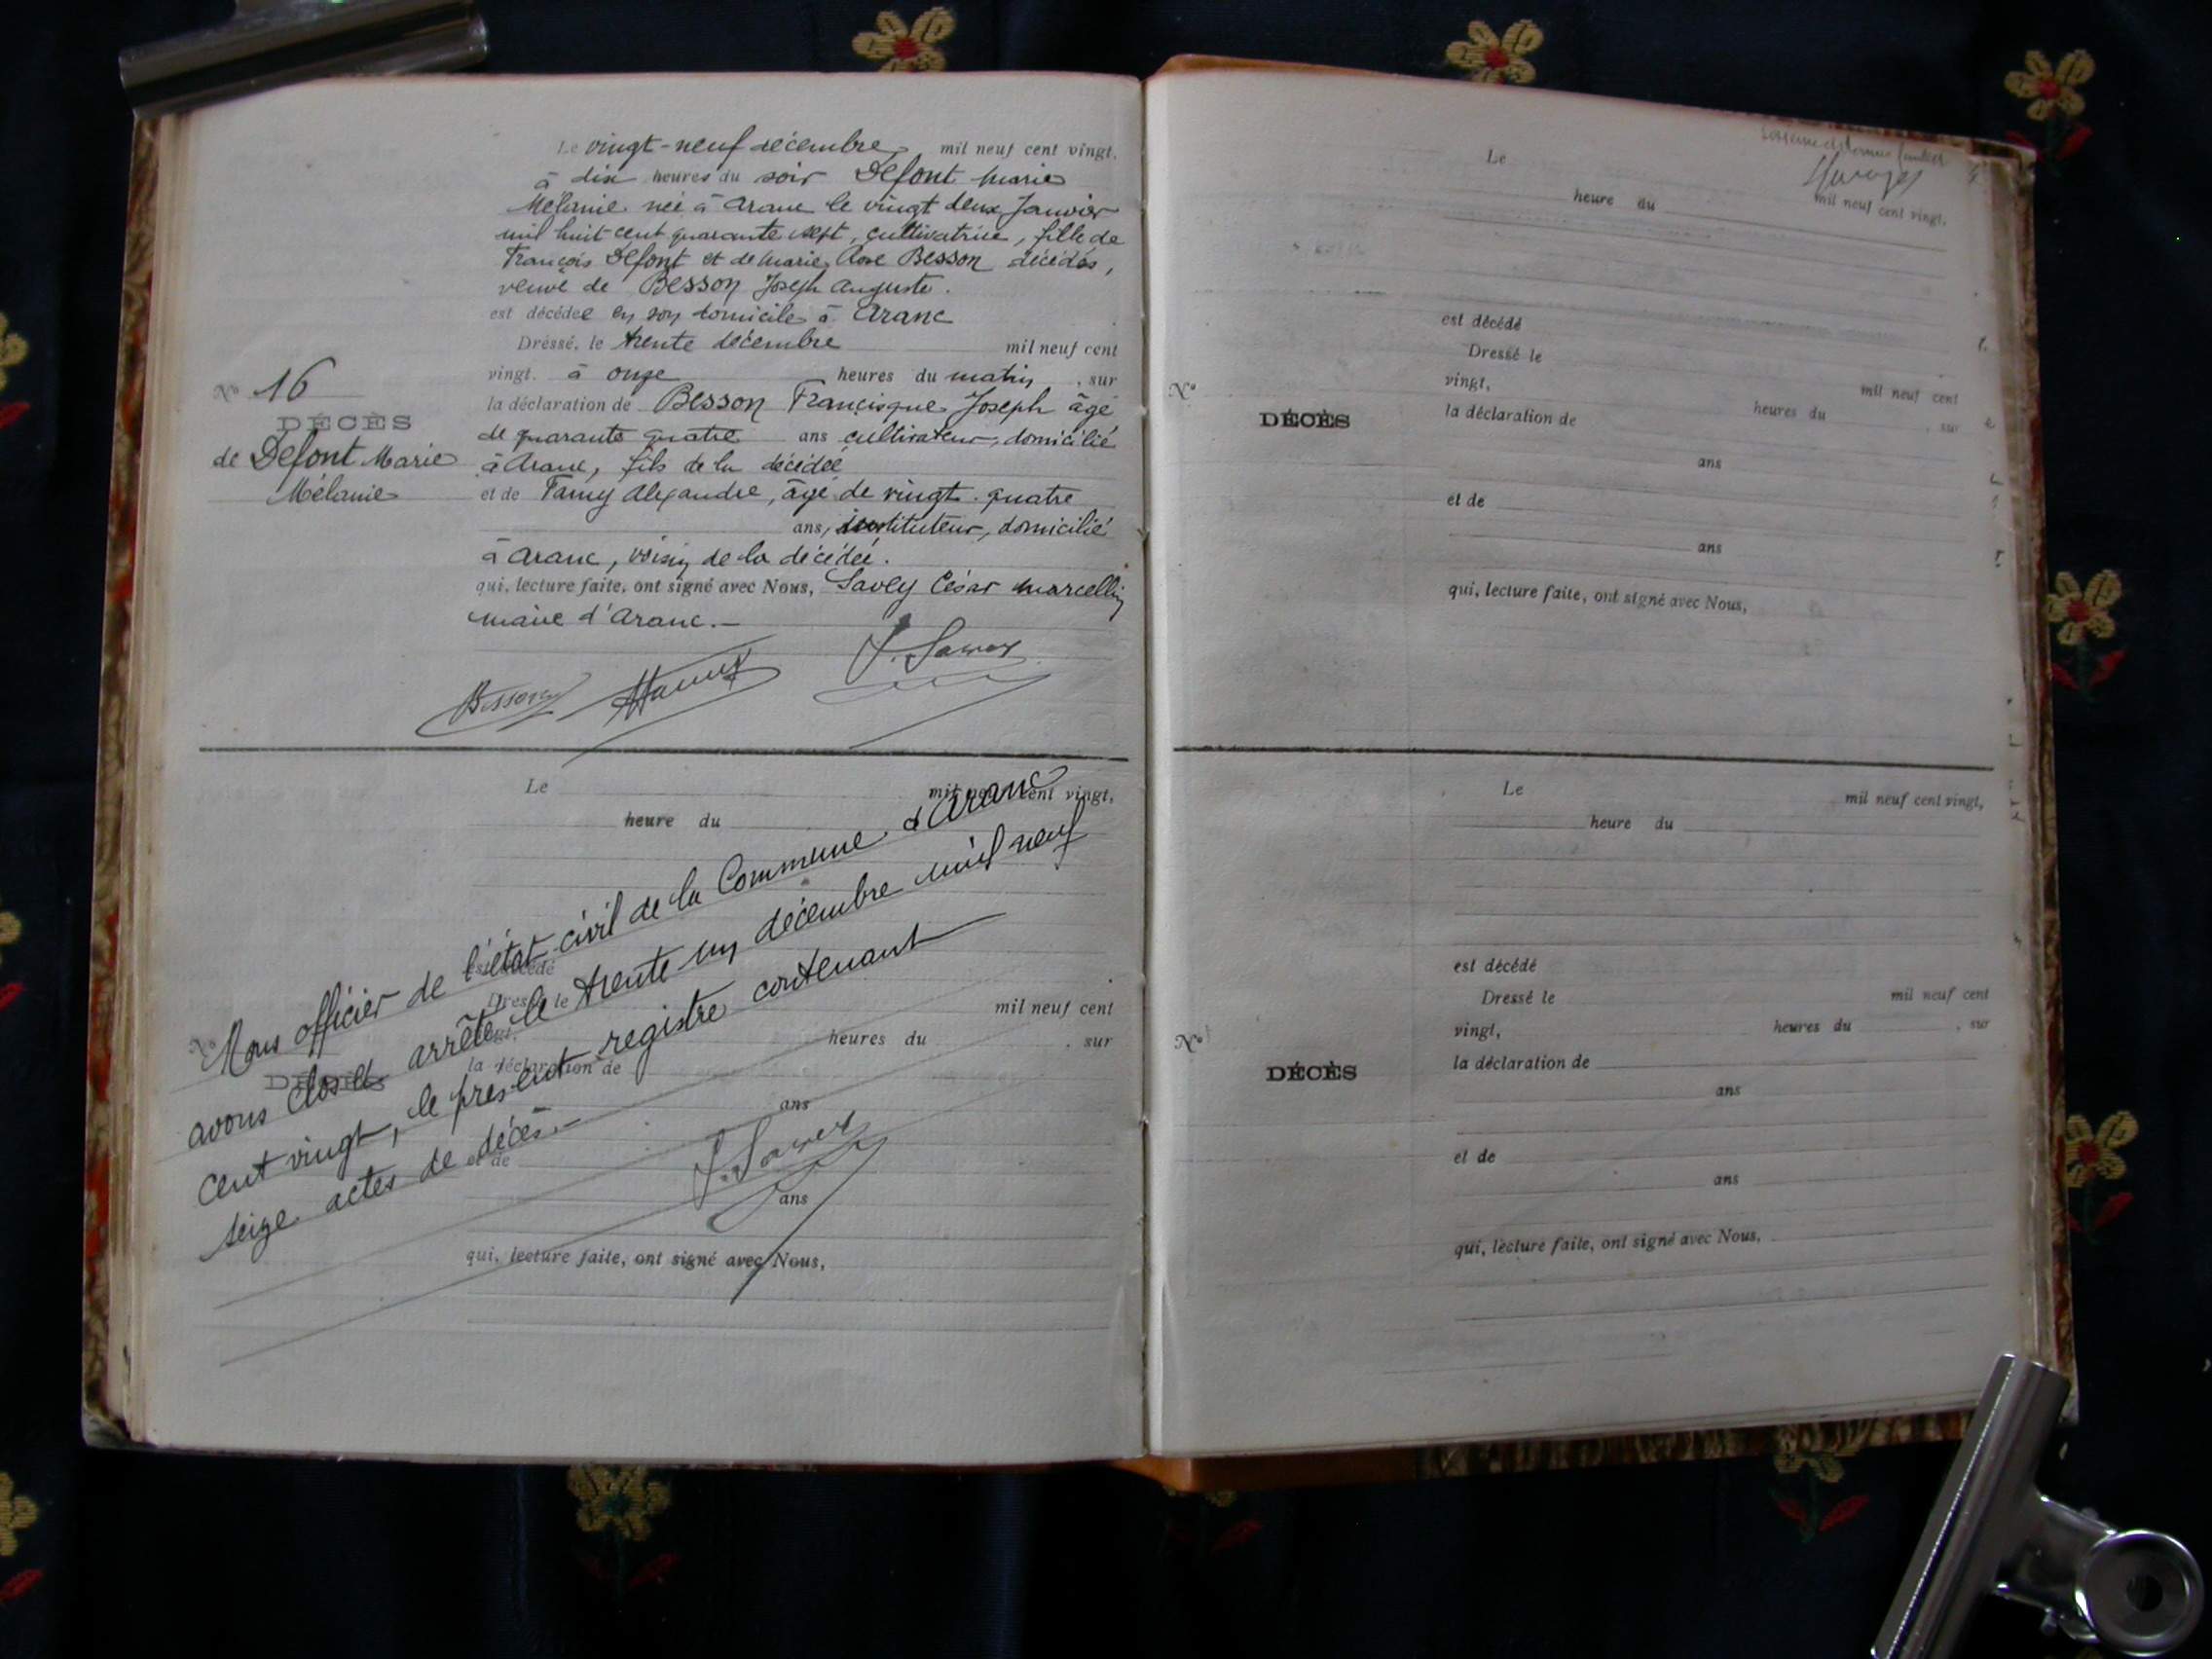 Le vingt-neuf décembre mil neuf cent vingt,
à dix heures du soir Defont Marie
Mélanie née à Aranc le vingt deux Janvier
mil huit cent quarante sept, cultivatrice, fille de
François Defont et de Marie Rose Besson décédés,
veuve de Besson Joseph Auguste.
est décédée en son domicile à Aranc
Dressé, le trente décembre mil neuf cent
vingt. à onze heures du matin, sur
la déclaration de Besson Francisque Joseph âgé
de quarante quatre ans cultivateur, domicilié
à Aranc, fils de la décédée
et de Famy Alexandre, âgé de vingt-quatre
ans, instituteur, domicilié
à Aranc, voisin de la décédée.
qui, lecture faite, ont signé avec Nous, Savey César Marcellin
maire d'Aranc.-
N° 16
DÉCÈS
de Defont Marie
Mélanie
Besson
Savey
Le mil neuf cent vingt,
heure du
est décédé
Dressé le mil neuf cent
vingt,
heures du , sur
la déclaration de
ans
et de
ans
qui, lecture faite, ont signé avec Nous,
N°
DÉCÈS
Nous officier de l'état-civil de la Commune d'Aranc
avons clos et arrêté le trente un décembre mil neuf
cent vingt, le présent registre contenant
seize actes de décès.-
Savey
Le
mil neuf cent vingt,
heure du
est décédé
Dressé le mil neuf cent
vingt, heures du , sur
la déclaration de
ans
et de
ans
qui, lecture faite, ont signé avec Nous,
N°
DÉCÈS
Le mil neuf cent vingt,
heure du
est décédé
Dressé le mil neuf cent
vingt, heures du , sur
la déclaration de
ans
et de
ans
qui, lecture faite, ont signé avec Nous,
N°
DÉCÈS